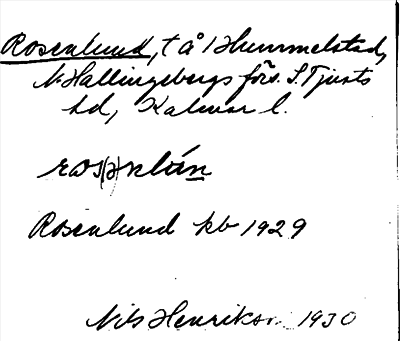 Rosenlund, t å 1 Hummelstad,
V. Hallingebergs förs. S. Tjusts
hd, Kalmar l.
ros(ə)nlún
Rosenlund kb 1929
Nils Henrikson 1930